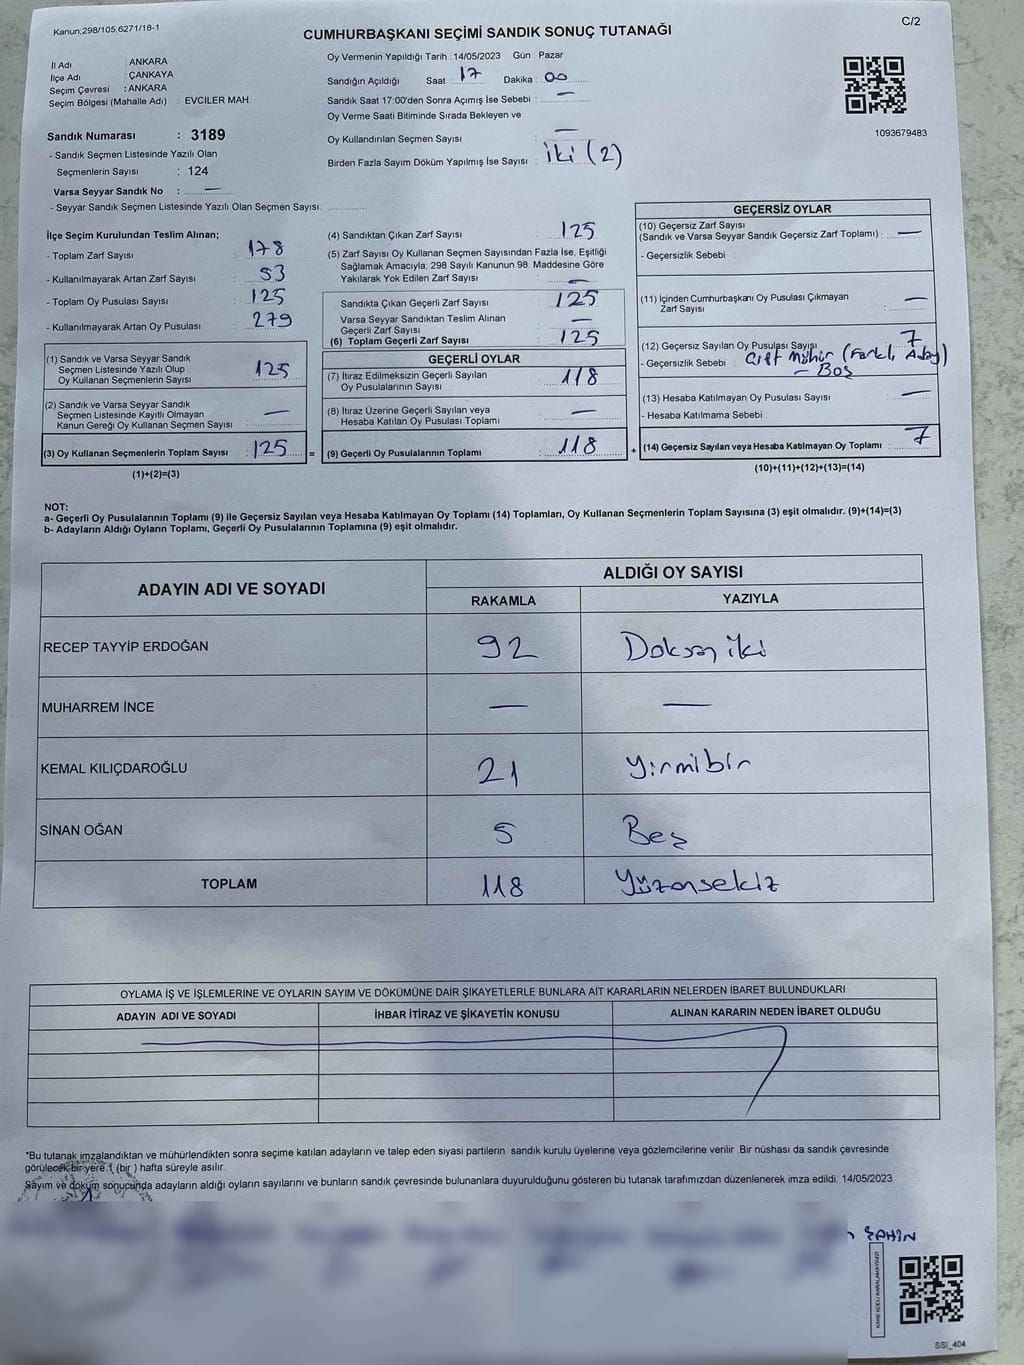 Kanun;298/105,6271/18-1
C/2
CUMHURBAŞKANI SEÇİMİ SANDIK SONUÇ TUTANAĞI
İl Adı : ANKARA
İlçe Adı : ÇANKAYA
Seçim Çevresi : ANKARA
Seçim Bölgesi (Mahalle Adı) : EVCİLER MAH.
Sandık Numarası : 3189
- Sandık Seçmen Listesinde Yazılı Olan
Seçmenlerin Sayısı : 124
Varsa Seyyar Sandık No : —
- Seyyar Sandık Seçmen Listesinde Yazılı Olan Seçmen Sayısı: ..............
Oy Vermenin Yapıldığı Tarih : 14/05/2023 Gün : Pazar
Sandığın Açıldığı Saat : 17 Dakika : 00
Sandık Saat 17:00'den Sonra Açımış İse Sebebi : —
Oy Verme Saati Bitiminde Sırada Bekleyen ve
Oy Kullandırılan Seçmen Sayısı : —
Birden Fazla Sayım Döküm Yapılmış İse Sayısı : iki (2)
1093679483
İlçe Seçim Kurulundan Teslim Alınan;
- Toplam Zarf Sayısı : 178
- Kullanılmayarak Artan Zarf Sayısı : 53
- Toplam Oy Pusulası Sayısı : 125
- Kullanılmayarak Artan Oy Pusulası : 279
(1) Sandık ve Varsa Seyyar Sandık
Seçmen Listesinde Yazılı Olup
Oy Kullanan Seçmenlerin Sayısı : 125
(2) Sandık ve Varsa Seyyar Sandık
Seçmen Listesinde Kayıtlı Olmayan
Kanun Gereği Oy Kullanan Seçmen Sayısı : —
(3) Oy Kullanan Seçmenlerin Toplam Sayısı : 125 =
(1)+(2)=(3)
(4) Sandıktan Çıkan Zarf Sayısı : 125
(5) Zarf Sayısı Oy Kullanan Seçmen Sayısından Fazla İse, Eşitliği
Sağlamak Amacıyla; 298 Sayılı Kanunun 98. Maddesine Göre
Yakılarak Yok Edilen Zarf Sayısı : —
Sandıkta Çıkan Geçerli Zarf Sayısı : 125
Varsa Seyyar Sandıktan Teslim Alınan
Geçerli Zarf Sayısı : —
(6) Toplam Geçerli Zarf Sayısı : 125
GEÇERLİ OYLAR
(7) İtiraz Edilmeksizin Geçerli Sayılan
Oy Pusulalarının Sayısı : 118
(8) İtiraz Üzerine Geçerli Sayılan veya
Hesaba Katılan Oy Pusulası Toplamı : —
(9) Geçerli Oy Pusulalarının Toplamı : 118 +
GEÇERSİZ OYLAR
(10) Geçersiz Zarf Sayısı
(Sandık ve Varsa Seyyar Sandık Geçersiz Zarf Toplamı) : —
- Geçersizlik Sebebi :
(11) İçinden Cumhurbaşkanı Oy Pusulası Çıkmayan
Zarf Sayısı : —
(12) Geçersiz Sayılan Oy Pusulası Sayısı : 7
- Geçersizlik Sebebi : Çift Mühür (Farklı Aday)
- Boş
(13) Hesaba Katılmayan Oy Pusulası Sayısı : —
- Hesaba Katılmama Sebebi :
(14) Geçersiz Sayılan veya Hesaba Katılmayan Oy Toplamı : 7
(10)+(11)+(12)+(13)=(14)
NOT:
a- Geçerli Oy Pusulalarının Toplamı (9) ile Geçersiz Sayılan veya Hesaba Katılmayan Oy Toplamı (14) Toplamları, Oy Kullanan Seçmenlerin Toplam Sayısına (3) eşit olmalıdır. (9)+(14)=(3)
b- Adayların Aldığı Oyların Toplamı, Geçerli Oy Pusulalarının Toplamına (9) eşit olmalıdır.
ADAYIN ADI VE SOYADI
ALDIĞI OY SAYISI
RAKAMLA YAZIYLA
RECEP TAYYİP ERDOĞAN 92 Doksan iki
MUHARREM İNCE — —
KEMAL KILIÇDAROĞLU 21 Yirmibir
SİNAN OĞAN 5 Beş
TOPLAM 118 Yüzonsekiz
OYLAMA İŞ VE İŞLEMLERİNE VE OYLARIN SAYIM VE DÖKÜMÜNE DAİR ŞİKAYETLERLE BUNLARA AİT KARARLARIN NELERDEN İBARET BULUNDUKLARI
ADAYIN ADI VE SOYADI İHBAR İTİRAZ VE ŞİKAYETİN KONUSU ALINAN KARARIN NEDEN İBARET OLDUĞU
*Bu tutanak imzalandıktan ve mühürlendikten sonra seçime katılan adayların ve talep eden siyasi partilerin sandık kurulu üyelerine veya gözlemcilerine verilir. Bir nüshası da sandık çevresinde
görülecek bir yere 1 (bir) hafta süreyle asılır.
Sayım ve döküm sonucunda adayların aldığı oyların sayılarını ve bunların sandık çevresinde bulunanlara duyurulduğunu gösteren bu tutanak tarafımızdan düzenlenerek imza edildi. 14/05/2023
ŞAHİN
KARE KODU KARALAMAYINIZ!
SSİ_404